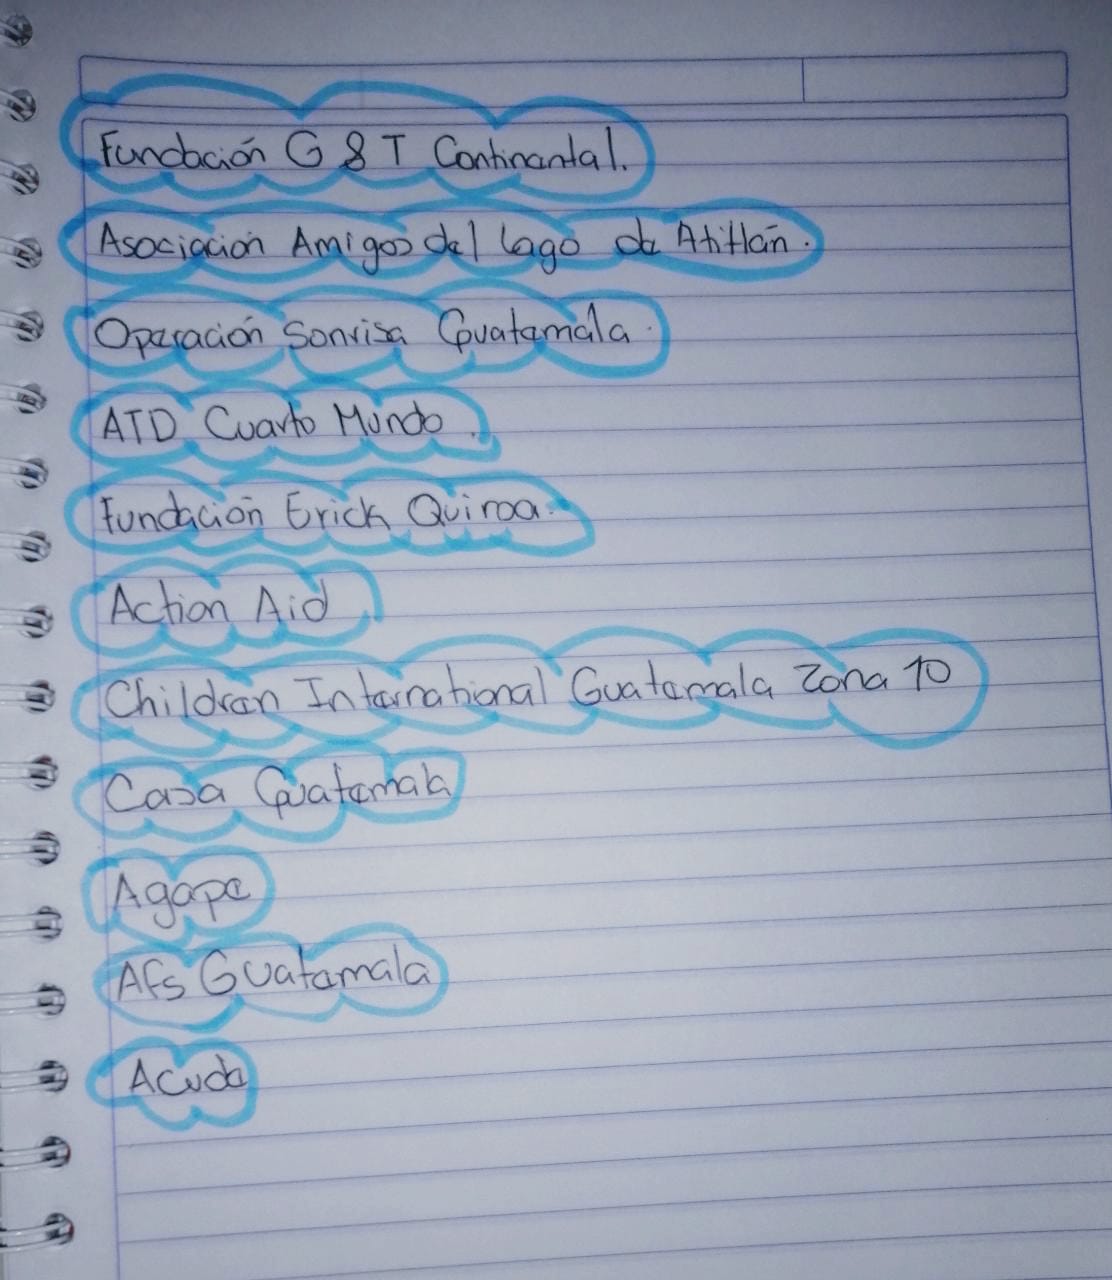 Fundación G & T Continental.
Asociación Amigos del lago de Atitlán.
Operación Sonrisa Guatemala.
ATD Cuarto Mundo.
Fundación Erick Quiroa.
Action Aid
Children International Guatemala Zona 10
Casa Guatemala
Agape
Afs Guatemala
Acude